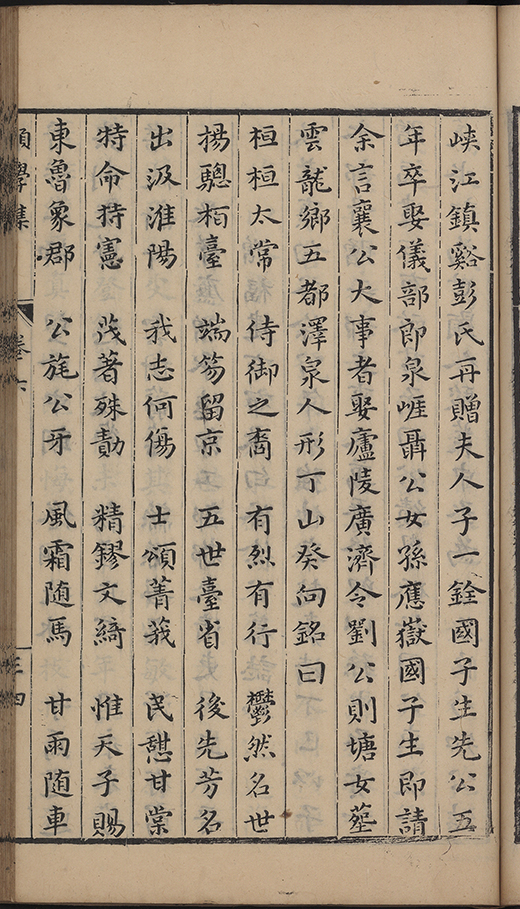 峽江鎮谿彭氏再贈夫人子一銓國子生先公五
年卒娶儀部郎泉崕聶公女孫應嶽國子生即請
余言襄公大事者娶廬陵廣濟令劉公則塘女塟
雲龍鄉五都澤泉人形丁山癸向銘曰
桓桓太常 侍御之裔 有烈有行 鬱然名世
揚驄栢臺 端笏留京 五世臺省 後先芳名
出汲淮陽 我志何傷 士頌菁莪 民憇甘棠
特命持憲 茂著殊勣 精鏐文綺 惟天子賜
東魯象郡 公旄公牙 風霜随馬 甘雨随車
學集 卷六 三四